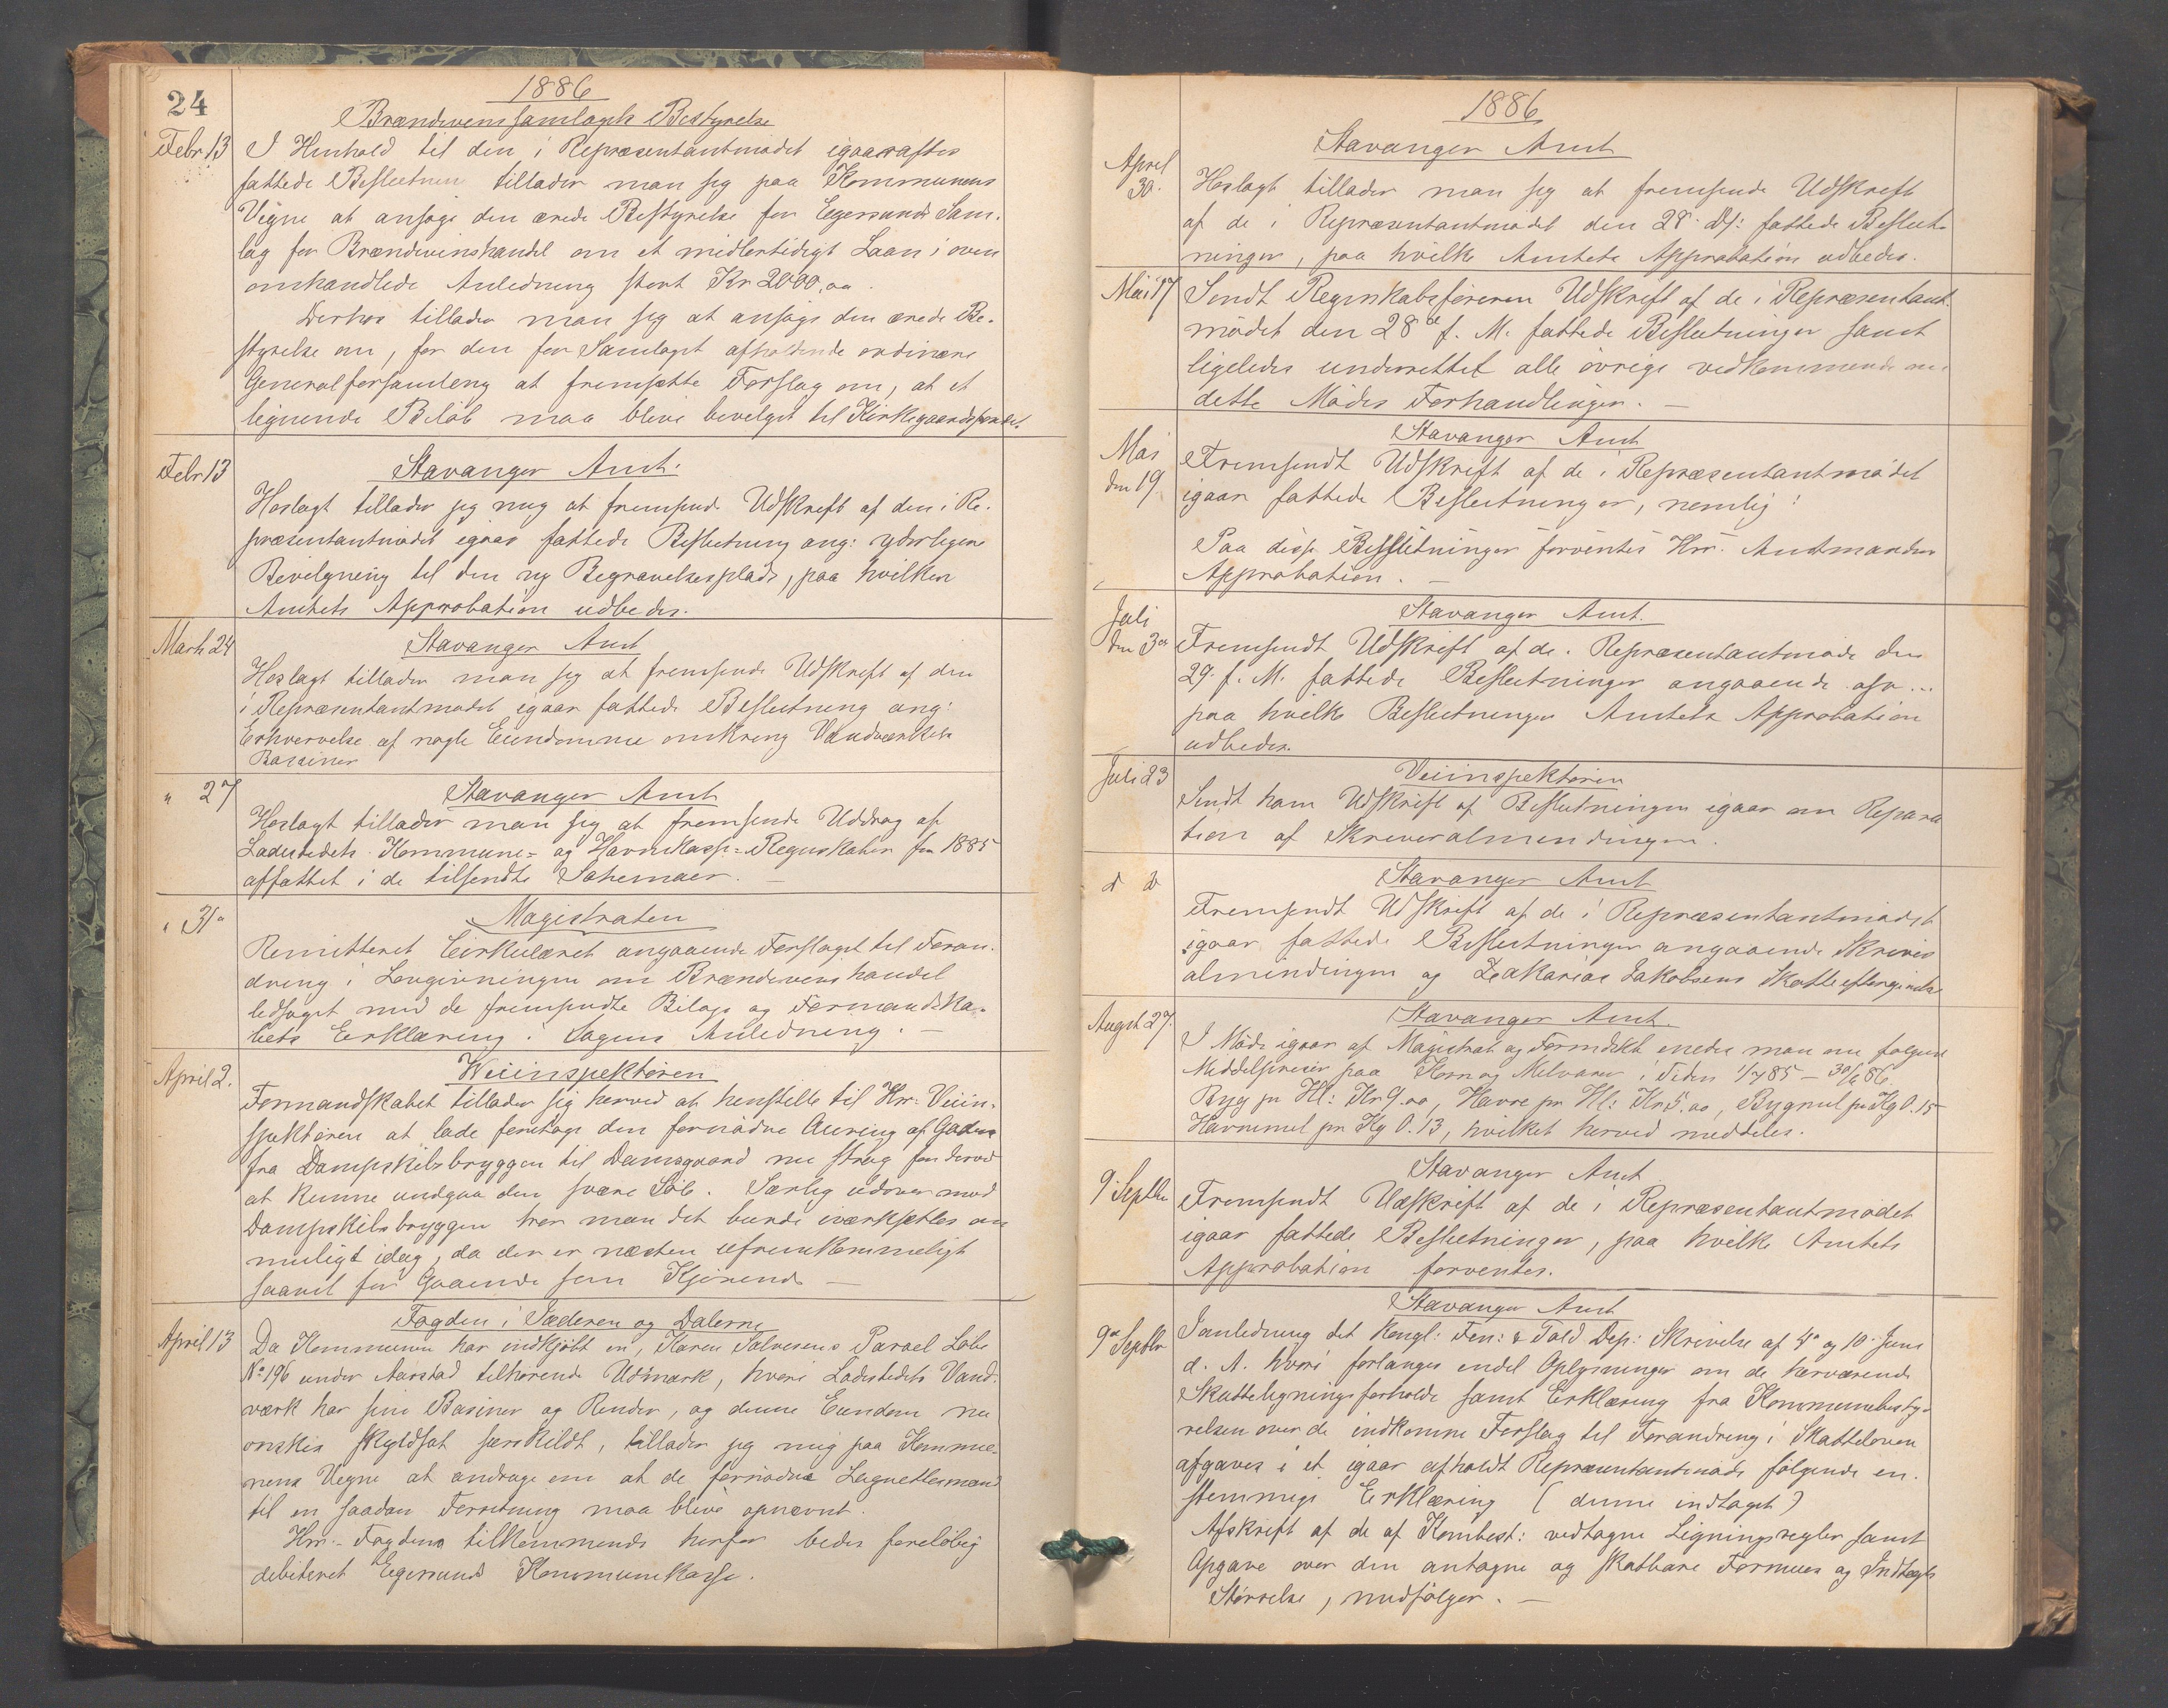 24
1886
Brændevinssamlagets Bestyrelse
Febr 13 I Henhold til den i Repræsentantmødet igaaraftes
fattede Beslutning tillader man sig paa Kommunens
Vegne at ansøge den ærede Bestyrelse for Egersunds Sam-
lag for Brændevinshandel om et midlertidigt Laan i oven
omhandlede Anledning stort Kr 2000,00.
Derhos tillader man sig at ansøge den ærede Be-
styrelse om, for den for Samlaget afholdende ordinære
Generalforsamling at fremsætte Forslag om, at et
lignende Beløb maa blive bevilget til Kirkegaardsfondet.
Febr 13 Stavanger Amt.
Hoslagt tillader jeg mig at fremsende Udskrift af den i Re-
præsentantmødet igaar fattede Beslutning ang: yderligere
Bevilgning til den ny Begravelsesplads, paa hvilken
Amtets Approbation udbedes.
Marts 24 Stavanger Amt
Hoslagt tillader man sig at fremsende Udskrift af den
i Repræsentantmødet igaar fattede Beslutning ang:
Erhvervelse af nogle Eiendomme omkring Vandværkets
Bassiner
" 27 Stavanger Amt
Hoslagt tillader man sig at fremsende Uddrag af
Ladestedets Kommune= og Havnekasse=Regnskaber for 1885
affattet i de tilsendte Schemaer. —
" 31 Magistraten
Remitteret Cirkulæret angaaende Forslaget til Foran-
dring i Lovgivningen om Brændevinshandel
ledsaget med de fremsendte Bilage og Formandska-
bets Erklæring i Sagens Anledning. —
April 2. Veiinspektøren
Formandskabet tillader sig herved at henstille til Hr. Veiin-
spektøren at lade foretage den fornødne Auring af Gaden
fra Dampskibsbryggen til Damsgaard nu strax for derved
at kunne undgaa den svære Søle. Særlig udover mod
Dampskibsbryggen tror man det burde iværksættes om
muligt idag, da der er næsten ufremkommeligt
saavel for Gaaende som Kjørende —
April 13 Fogden i Jæderen og Dalerne
Da Kommunen har indkjøbt en, Karen Salvesens Parsel Løbe
No 196 under Aarstad tilhørende Udmark, hvori Ladestedets Vand-
værk har sine Basiner og Render, og denne Eiendom nu
ønskes skyldsat særskildt, tillader jeg mig paa Kommu-
nens Vegne at andrage om at de fornødne Lagrettesmænd
til en saadan Forretning maa blive opnævnt.
Hr. Fogdens tilkommende herfor bedes foreløbig
debiteret Egersunds Kommunekasse.
1886
Stavanger Amt
April 30. Hoslagt tillader man sig at fremsende Udskrift
af de i Repræsentantmødet den 28. ds: fattede Beslut-
ninger, paa hvilke Amtets Approbation udbedes.
Mai 17 Sendt Regnskabsføreren Udskrift af de i Repræsentant-
mødet den 28de f. M. fattede Beslutninger samt
ligeledes underrettet alle øvrige vedkommende om
dette Mødes Forhandlinger. —
Stavanger Amt
Mai den 19 Fremsendt Udskrift af de i Repræsentantmødet
igaar fattede Beslutninger, nemlig:
Paa disse Beslutninger forventes Hr. Amtmandens
Approbation. —
Stavanger Amt.
Juli den 3die Fremsendt Udskrift af de i Repræsentantmøde den
29. f. M. fattede Beslutninger angaaende osv...
paa hvilke Beslutninger Amtets Approbation
udbedes.
Juli 23 Veiinspektøren
Sendt ham Udskrift af Beslutningen igaar om Repara
tion af Skriveralmendingen.
d d Stavanger Amt
Fremsendt Udskrift af de i Repræsentantmødet
igaar fattede Beslutninger angaaende Skriver
almindingen og Zakarias Jakobsens Skatteeftergivelse
Stavanger Amt.
August 27. I Møde igaar af Magistrat og Formdskbt enedes man om følgende
Middelpriser paa Korn og Melvarer i Tiden 1/7 85 — 30/6 86.
Byg pr Hl: Kr 9.00, Havre pr Hl: Kr 5.00, Bygmel pr Kg 0.15
Havremel pr Kg 0.13, hvilket herved meddeles.
Stavanger Amt
9. Septbr Fremsendt Udskrift af de i Repræsentantmødet
igaar fattede Beslutninger, paa hvilke Amtets
Approbation forventes.
Stavanger Amt
9de Septbr I anledning det Kongl: Fin: & Told Dep: Skrivelse af 4de og 10. Juni
d. A. hvori forlanges endel Oplysninger om de herværende
Skatteligningsforholde samt Erklæring fra Kommunebesty-
relsen over de indkomne Forslag til Forandring i Skatteloven
afgaves i et igaar afholdt Repræsentantmøde følgende en-
stemmige Erklæring (denne indtaget)
Afskrift af de af Kombest: vedtagne Ligningsregler samt
Opgave over den antagne og skatbare Formues og Indtægts
Størrelse, medfølger. —